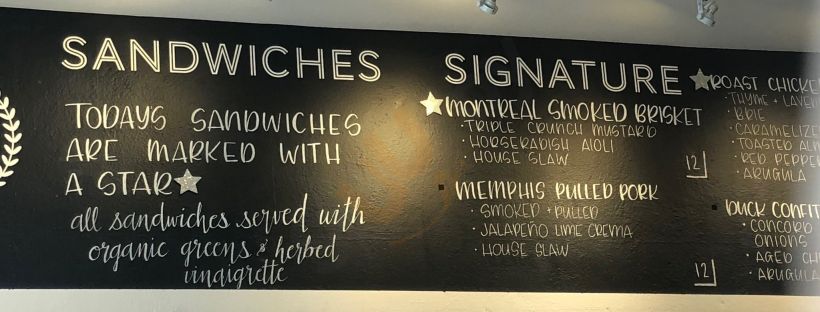 SANDWICHES
TODAYS SANDWICHES
ARE MARKED WITH
A STAR
all sandwiches served with
organic greens & herbed
vinaigrette
SIGNATURE
MONTREAL SMOKED BRISKET
· TRIPLE CRUNCH MUSTARD
· HORSERADISH AIOLI
· HOUSE SLAW
12
MEMPHIS PULLED PORK
· SMOKED + PULLED
· JALAPEÑO LIME CREMA
· HOUSE SLAW
12
ROAST
· THYME +
· BRIE
· TOASTED
· RED
· ARUGULA
DUCK
· CONCORD
ONIONS
· AGED
· ARUGULA